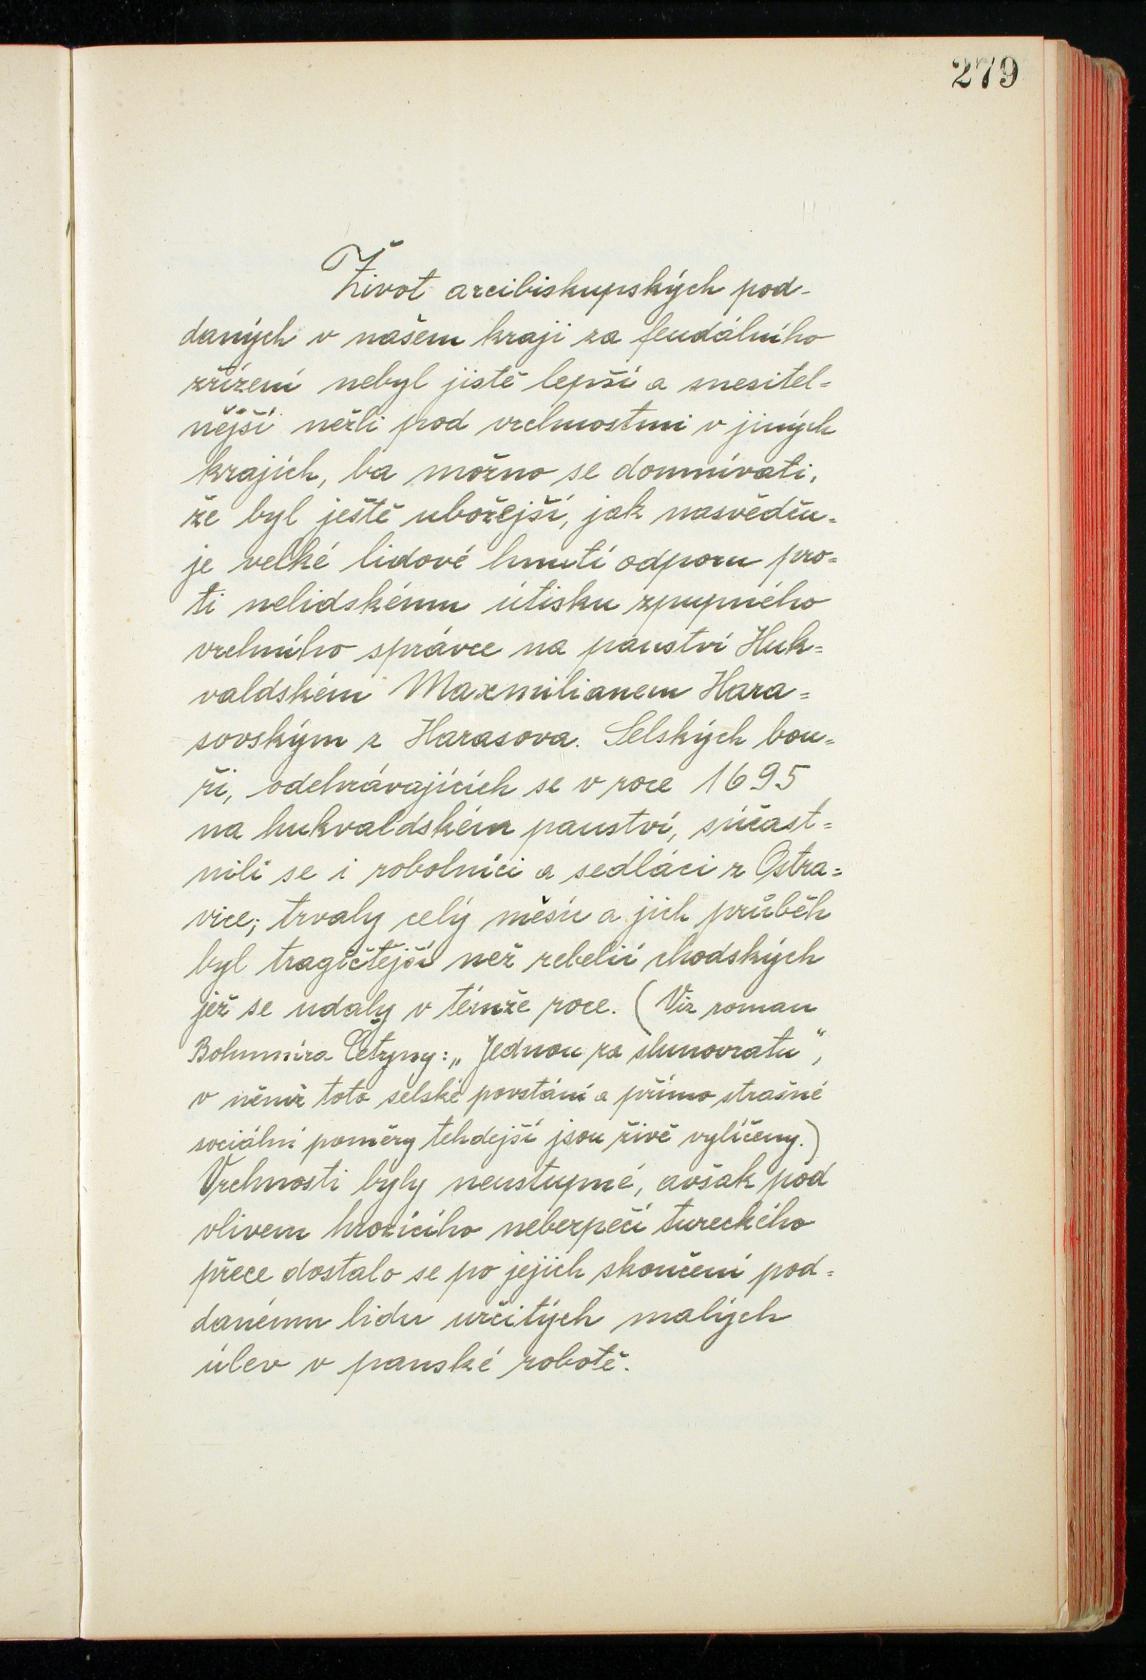 279
Život arcibiskupských pod-
daných v našem kraji za feudálního
zřízení nebyl jistě lepší a snesitel=
nější nežli pod vrchnostmi v jiných
krajích, ba možno se domnívati,
že byl ještě ubožejší, jak nasvědču=
je velké lidové hnutí odporu pro=
ti nelidskému útisku zpupného
vrchního správce na panství Huk=
valdském Maxmilianem Hara=
sovským z Harasova. Selských bou=
ří, odehrávajících se v roce 1695
na hukvaldském panství, súčast=
nili se i robotníci a sedláci z Ostra=
vice; trvaly celý měsíc a jich průběh
byl tragičtější než rebelií chodských
jež se udaly v témže roce. (Viz roman
Bohumíra Četyny: „Jednou za slunovratu",
v němž toto selské povstání a přímo strašné
sociální poměry tehdejší jsou živě vylíčeny.)
Vrchnosti byly neustupné, avšak pod
vlivem hrozícího nebezpečí tureckého
přece dostalo se po jejich skončení pod=
danému lidu určitých malých
úlev v panské robotě.